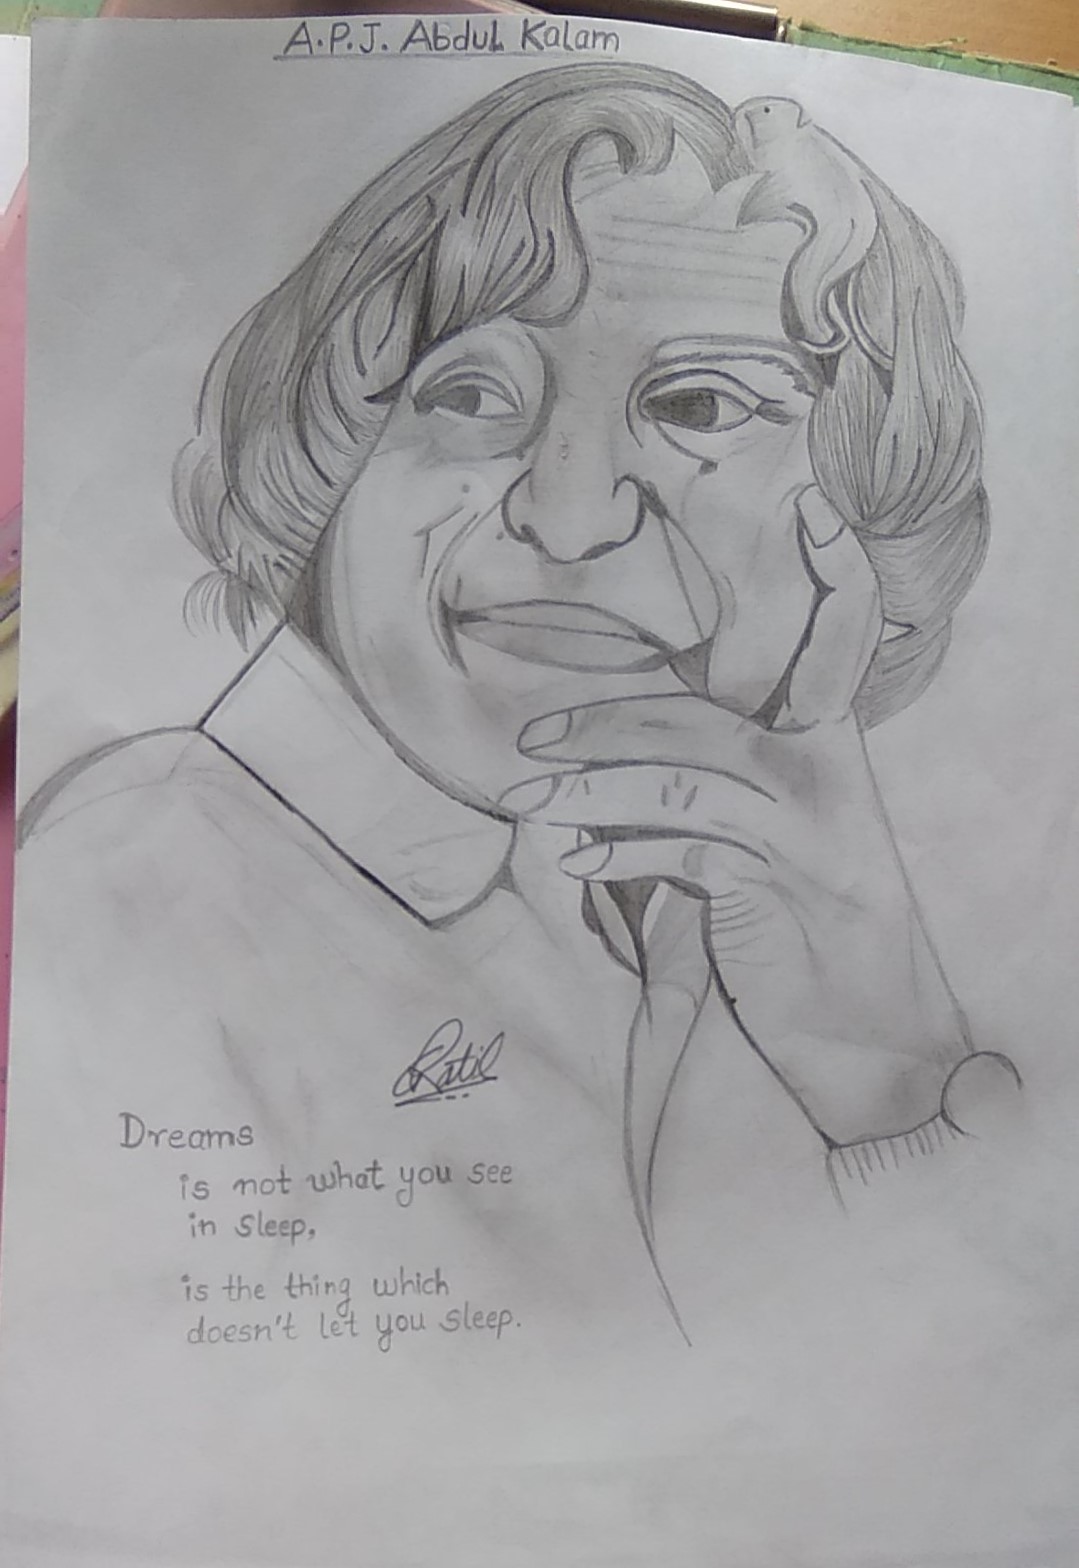 A.P.J. Abdul Kalam
Dreams
is not what you see
in sleep,
is the thing which
doesn't let you sleep.